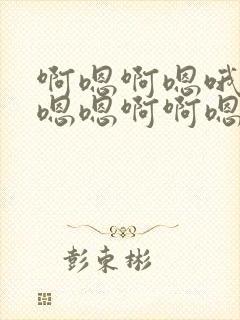 啊嗯啊嗯哦
嗯嗯啊啊嗯
彭束彬